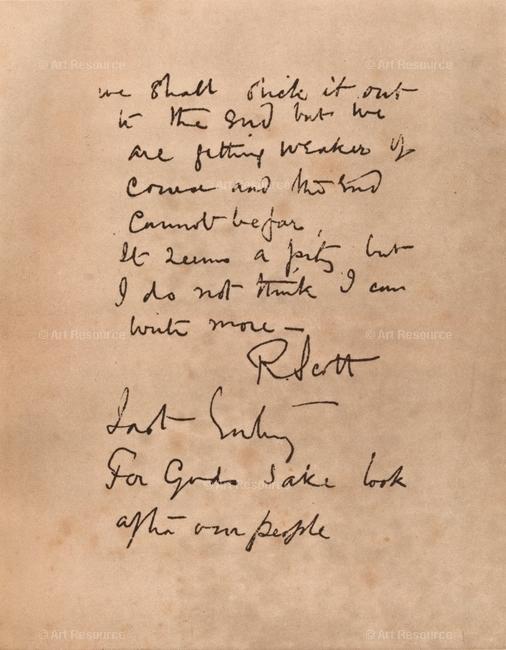 © Art Resource © Art Resource
we shall stick it out
to the end but we
are getting weaker of
course and the end
cannot be far.
It seems a pity but
I do not think I can
write more —
© Art Resource © Art Resource
R. Scott
Last Entry
For Gods sake look
after our people
© Art Resource © Art Resource